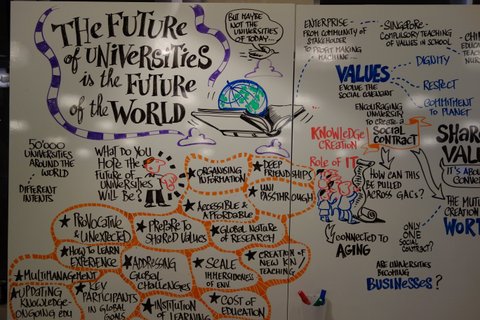 The Future
of Universities
is the Future
of the World
But maybe
not the
universities
of today...
50'000
universities
around the
world
Different
intents
What do you
hope the
future of
universities
will be?
★ Organising
information
★ Deep
friendships
★ Uni
passthrough
★ Accessible &
affordable
★ Provocative
& unexpected
★ Prepare to
shared values
★ Global nature
of research
★ How to learn
experience
★ Addressing
global
challenges
★ Scale
immersiones
of env.
★ Creation of
new kin/
teaching
★ Multimanagement
★ Updating
knowledge -
ongoing edu
★ Key
participants
in global
goals
★ Institution
★ Cost of
education
Enterprise
from community of
stakeholder
to profit making
machine...
Singapore-
compulsory teaching
of values in school
Values
evolve the
social covenant
Dignity
Respect
Commitment
to planet
Encouraging
university
to create a
social
contract
Knowledge
creation
Role of IT
How can this
be pulled
across GACs?
Connected to
aging
Only
one
social
contract?
Are universities
becoming
businesses?
It's about
The mut
creation